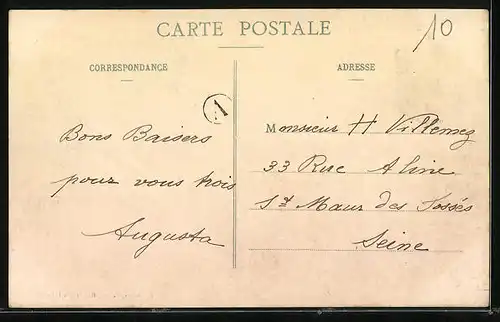 CARTE POSTALE
10
CORRESPONDANCE
ADRESSE
1
Bons Baisers
pour vous trois
Augusta
Monsieur H Villemez
33 Rue Aline
St Maur des Fossés
Seine